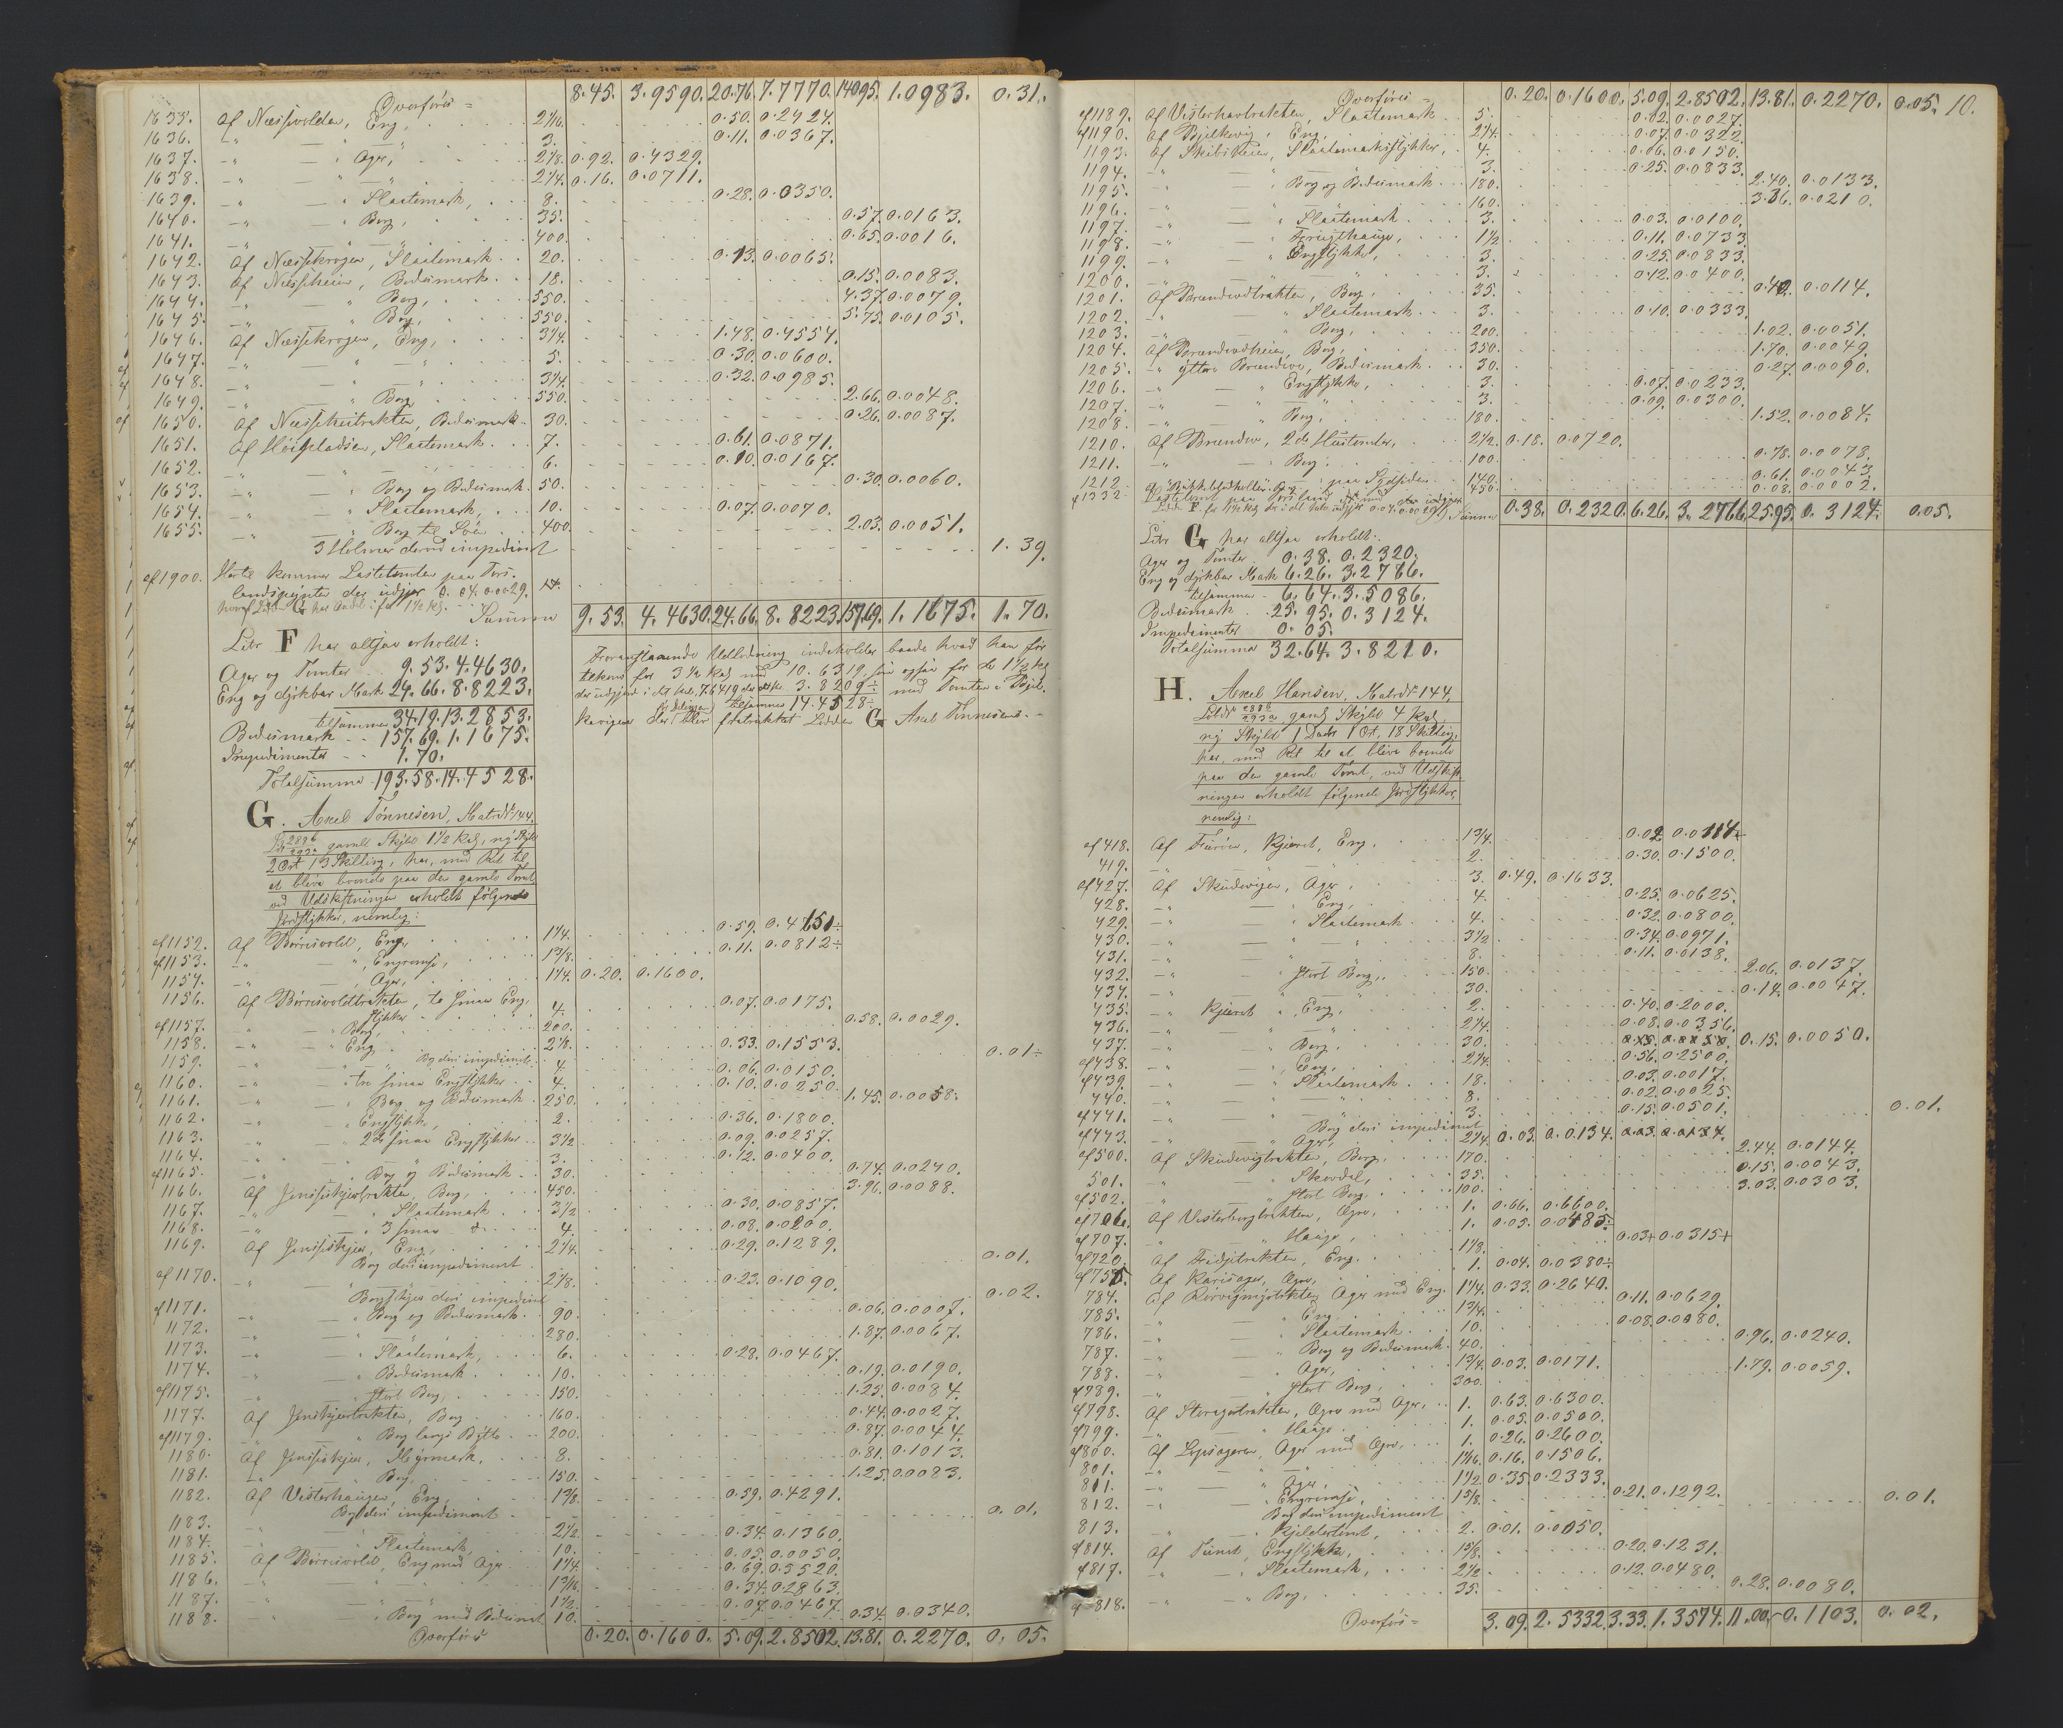 Overføres = 8.45. 3.9590. 20.76. 7.7770. 140.95. 1.0983. 0.31.
1635. af Næssvolden, Eng, 2 1/16. 0.50. 0.2424.
1636. -"- — " — " 3. 0.11. 0.0367.
1637. -"- — " Ager, 2 1/8. 0.92. 0.4329.
1638. -"- — " — " 2 1/4. 0.16. 0.0711.
1639. -"- — " Slaatemark, 8. 0.28. 0.0350.
1640. -"- — " Berg, 35. 0.57. 0.0163.
1641. -"- — " — " 400. 0.65. 0.0016.
1642. af Næsskrogen, Slaatemark. 20. 0.13. 0.0065.
1643. af Næssheien, Bedesmark. 18. 0.15. 0.0083.
1644. -"- — " Berg, 550. 4.37. 0.0079.
1645. -"- — " Berg, 550. 5.75. 0.0105.
1646. af Næsskrogen, Eng, 3 1/4. 1.48. 0.4554.
1647. -"- — " — " 5. 0.30. 0.0600.
1648. -"- — " — " 3 1/4. 0.32. 0.0985.
1649. -"- — " Berg 550. 2.66. 0.0048.
af 1650. af Næssheitrakten, Bedesmark. 30. 0.26. 0.0087.
1651. af Høipladsen, Slaatemark. 7. 0.61. 0.0871.
1652. -"- — " — " 6. 0.10. 0.0167.
1653. -"- — " Berg og Bedesmark. 50. 0.30. 0.0060.
1654. -"- — " Slaatemark, 10. 0.07. 0.0070.
1655. -"- — " Berg til Søen 400. 2.03. 0.0051.
3 Holmer derved impediment 1.39.
af 1900. Hertil kommer Lastetomten paa Tors-
landspynten der udgjør 0.04. 0.0029.
hvoraf Litr. G har Andel i for 1 1/2 kg.
Summa 9.53. 4.4630. 24.66. 8.8223. 157.69. 1.1675. 1.70.
Litr F har altsaa erholdt:
Ager og Tomter 9.53. 4.4630.
Eng og dyrkbar Mark 24.66. 8.8223.
tilsammen 34.19. 13.2853.
Bedesmark 157.69. 1.1675.
Impedimenter 1.70.
Totalsumma 193.58. 14.4528.
Foranstaaende Udlodning indeholder baade hvad han før
G. Axel Tønnesen, Matr. No 144,
gamle Skyld 1 1/2 kg, ny Skyld
2 Ort 13 Skilling, har, med Ret til
at blive boende paa den gamle Tomt
ved Udskiftningen erholdt følgende
Jordstykker, nemlig:
af 1152. af Børresvold, Eng, 1 1/4. 0.59.
af 1153. -"- — ", Engremse, 1 3/8. 0.11. 0.0812÷
1154. -"- — ", Ager, 1 1/4. 0.20. 0.1600.
1156. af Børresvoldtrakten, to smaa Eng
stykker 4. 0.07. 0.0175.
af 1157. -"- — " Berg, 200. 0.58. 0.0029.
1158. -"- — " Eng 2 1/8. 0.33. 0.1553.
Berg deri impediment 0.01÷
1159. -"- — " 4. 0.06. 0.0150.
1160. -"- — " tre smaa Engstykker 4. 0.10. 0.0250.
1161. -"- — " Berg og Bedesmark. 250. 1.45. 0.0058.
1162. -"- — " Engstykke, 2. 0.36. 0.1800.
1163. -"- — " 2de smaa Engstykker 3 1/2. 0.09. 0.0257.
1164. -"- — " 3. 0.12. 0.0400.
af 1165. -"- — " Berg og Bedesmark 30. 0.74. 0.0240.
1166. af Jensiskjærtrakten, Berg, 450. 3.96. 0.0088.
1167. -"- — " Slaatemark 3 1/2 0.30. 0.0857.
1168. -"- — " 3 smaa do. 4. 0.08. 0.0200.
1169. af Jensiskjær, Eng, 2 1/4. 0.29. 0.1289.
Berg deri impediment 0.01.
af 1170. -"- — " 2 1/8. 0.23. 0.1090.
Bergskjær deri impediment 0.02.
af 1171. -"- — " Berg og Bedesmark 90. 0.06. 0.0007.
1172. -"- — " 280. 1.87. 0.0067.
1173. -"- — " Slaatemark, 6. 0.28. 0.0467.
1174. -"- — " Bedesmark. 10. 0.19. 0.0190.
af 1175. -"- — " stort Berg, 150. 1.25. 0.0084.
1177. af Jensiskjærtrakten, Berg 160. 0.44. 0.0027.
af 1179. -"- — " Berg langs Bytte 200. 0.87. 0.0044.
1180. af Jensiskjær, Myrmark, 8. 0.81. 0.1013.
1181. -"- — " Berg, 150. 1.25. 0.0083.
1182. af Vesterhaugen, Eng 1 3/8. 0.59. 0.4291.
Berg deri impediment 0.01.
1183. -"- — " 2 1/2. 0.34. 0.1360.
1184. -"- — " Slaatemark, 10. 0.05. 0.0050.
1185. af Børresvold, Eng med Ager 1 1/4. 0.69. 0.5520.
1186. -"- — " — " 1 3/16. 0.34. 0.2863.
1187. -"- — " — " 1 1/2. 0.07. 0.0467.
1188. -"- — " Berg med Bedesmark 10. 0.34. 0.0340.
Overføres 0.20. 0.1600. 5.09. 2.8502. 13.81. 0.2270. 0.05.
Overføres = 0.20. 0.1600. 5.09. 2.8502. 13.81. 0.2270. 0.05. 10.
af 1189. af Vesterhavtrakten, Slaatemark 5. 0.02. 0.0027.
af 1190. af Bjelkevig, Eng, 2 1/4. 0.07. 0.0322.
1193. af Skibsheien, Slaatemarkstykker, 4. 0.06. 0.0150.
1194. -"- — " 3. 0.25. 0.0833.
1195. -"- — " Berg og Bedesmark 180. 2.40. 0.0133.
1196. -"- — " 160. 3.36. 0.0210.
1197. -"- — " Slaatemark 3. 0.03. 0.0100.
1198. -"- — " Frugthauge, 1 1/2 0.11. 0.0733.
1199. -"- — " Engstykke, 3. 0.25. 0.0833.
1200. -"- — " 3. 0.12. 0.0400.
1201. af Brændvedtrakten, Berg, 35. 0.0114.
1202. -"- — " Slaatemark 3. 0.10. 0.0333.
1203. -"- — " Berg, 200. 1.02. 0.0051.
1204. af Brændvedheien, Berg, 350. 1.70. 0.0049.
1205. -"- yttre Brændevo, Bedesmark 30. 0.27. 0.0090.
1206. -"- — " Engstykke, 3. 0.07. 0.0233.
1207. -"- — " 3. 0.09. 0.0300.
1208. -"- — " Berg, 180. 1.52. 0.0084.
1210. af Brændevo, 2de Hustomter, 2 1/2 0.18. 0.0720.
1211. -"- — " Berg, 100. 0.78. 0.0078.
1212. Berg paa Sydsiden 140. 0.61. 0.0043.
af 1332. 450. 0.08. 0.0002.
Summa 0.38. 0.2320. 6.26. 3.2766. 25.95. 0.3124. 0.05.
Litr G har altsaa erholdt:
Ager og Tomter 0.38. 0.2320.
Eng og dyrkbar Mark 6.26. 3.2766.
tilsammen 6.64. 3.5086.
Bedesmark 25.95. 0.3124.
Impedimenter 0.05.
Totalsumma 32.64. 3.8210.
H. Axel Hansen, Matr. No 144,
gamle Skyld 4 kg,
ny Skyld 1 Daler 1 Ort, 18 Skilling,
har, med Ret til at blive boende
paa den gamle Tomt, ved Udskift-
ningen erholdt følgende Jordstykker,
nemlig:
af 418. af Furøen, Kjærret, Eng. 1 3/4.
419. -"- — " 2. 0.30. 0.1500.
af 427. af Skudevigen, Ager, 3. 0.49. 0.1633.
428. -"- — " Eng, 4. 0.25. 0.0625.
429. -"- — " Slaatemark 4. 0.32. 0.0800.
430. -"- — " 3 1/2 0.34. 0.0971.
431. -"- — " 8. 0.11. 0.0138.
432. -"- — " stort Berg, 150. 2.06. 0.0137.
434. -"- — " 30. 0.14. 0.0047.
435. -"- Kjærret ", Eng, 2. 0.40. 0.2000.
436. -"- — " 2 1/4. 0.08. 0.0356.
437. -"- — " Berg, 30. 0.15. 0.0050.
af 438. -"- — ", Eng, 2 1/4. 0.56. 0.2500.
af 439. -"- — " Slaatemark 18. 0.03. 0.0017.
440. -"- — " 8. 0.02. 0.0025.
af 441. -"- — " 3. 0.15. 0.0501.
Berg deri impediment 0.01.
af 443. -"- — " Ager, 2 1/4. 0.03. 0.0134.
af 500. af Skudevigtrakten, Berg, 170. 2.44. 0.0144.
501. -"- — " Skovdal, 35. 0.15. 0.0043.
af 502. -"- — " stort Berg, 100. 3.03. 0.0303.
af 706. af Vesterbergtrakten, Agre, 1. 0.66. 0.6600.
af 707. -"- — " Hauge, 1. 0.05.
1 1/8. 0.03+ 0.0315+
af 720. af Fridjetrakten, Eng. 1. 0.04. 0.0380÷
af 755. af Karisager, Agre, 1 1/4. 0.33. 0.2640.
784. Ager med Eng. 1 3/4. 0.11. 0.0629.
785. -"- — " Eng 10. 0.08. 0.0080.
786. -"- — " Slaatemark 40. 0.96. 0.0240.
787. -"- — " Berg og Bedesmark. 1 3/4. 0.03. 0.0171.
788. -"- — " Ager, 300. 1.79. 0.0059.
af 789. -"- — " stort Berg, 1. 0.63. 0.6300.
af 798. af Storagertrakten, Agre med Ager, 1. 0.05. 0.0500.
af 799. -"- — " Hauge 1. 0.26. 0.2600.
af 800. af Lopsageren, Ager med Agre, 1 1/16. 0.16. 0.1506.
801. -"- — " 1 1/2 0.35. 0.2333.
811. -"- — " Ager, 1 5/8. 0.21. 0.1292.
812. -"- — " Engremse,
Berg deri impediment 0.01.
813. -"- — " Kjeldertomt, 2. 0.01. 0.0050.
af 814. af Tunet, Engstykke, 1 5/8. 0.20. 0.1231.
af 817. -"- — " Slaatemark, 2 1/2 0.12. 0.0480.
af 818. -"- — " Berg, 35. 0.28. 0.0080.
Overføres = 3.09. 2.5332. 3.33. 1.3574. 11.00. 0.1103. 0.02.